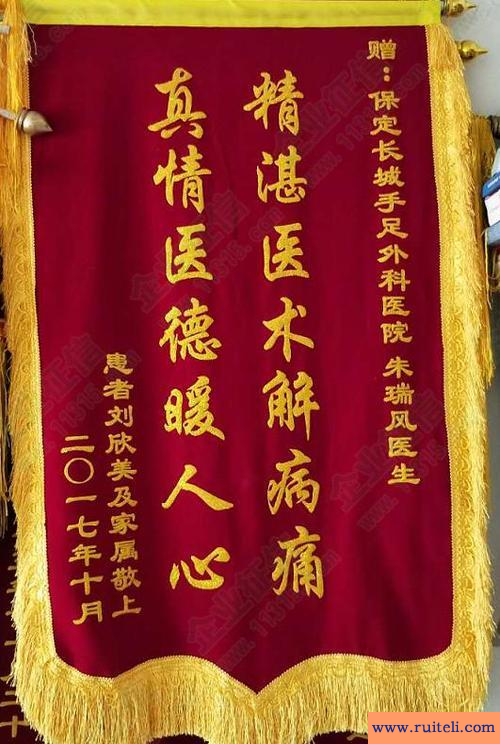 赠：保定长城手足外科医院 朱瑞风医生
精湛医术解病痛
真情医德暖人心
患者刘欣美及家属敬上
二〇一七年十月
企业征信
11315.com
www.ruiteli.com